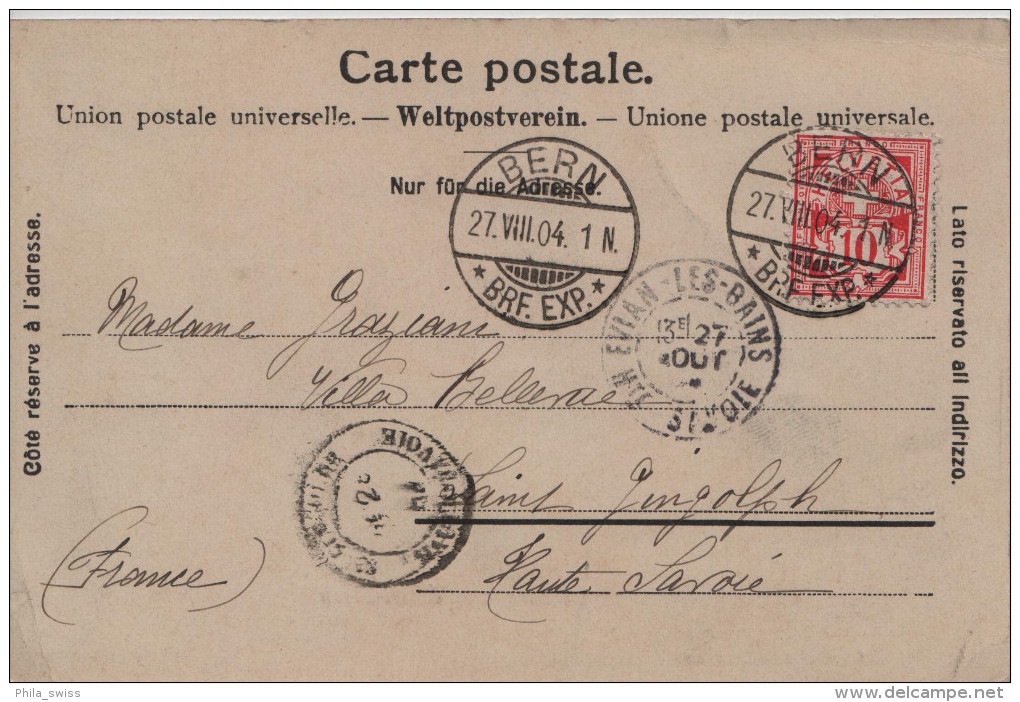 Carte postale.
Union postale universelle. — Weltpostverein. — Unione postale universale.
Nur für die Adresse.
Côté réservé à l'adresse.
Lato riservato all indirizzo.
BERN
27.VIII.04. 1 N.
* BRF. EXP. *
BERN
27.VIII.04. 1 N.
* BRF. EXP. *
HELVETIA
FRANCO
10
EVIAN-LES-BAINS
3E 27
AOUT
SAVOIE
Madame Graziani
Villa Bellevue
Saint Gingolph
Haute Savoie
(France)
Phila_swiss
www.delcampe.net